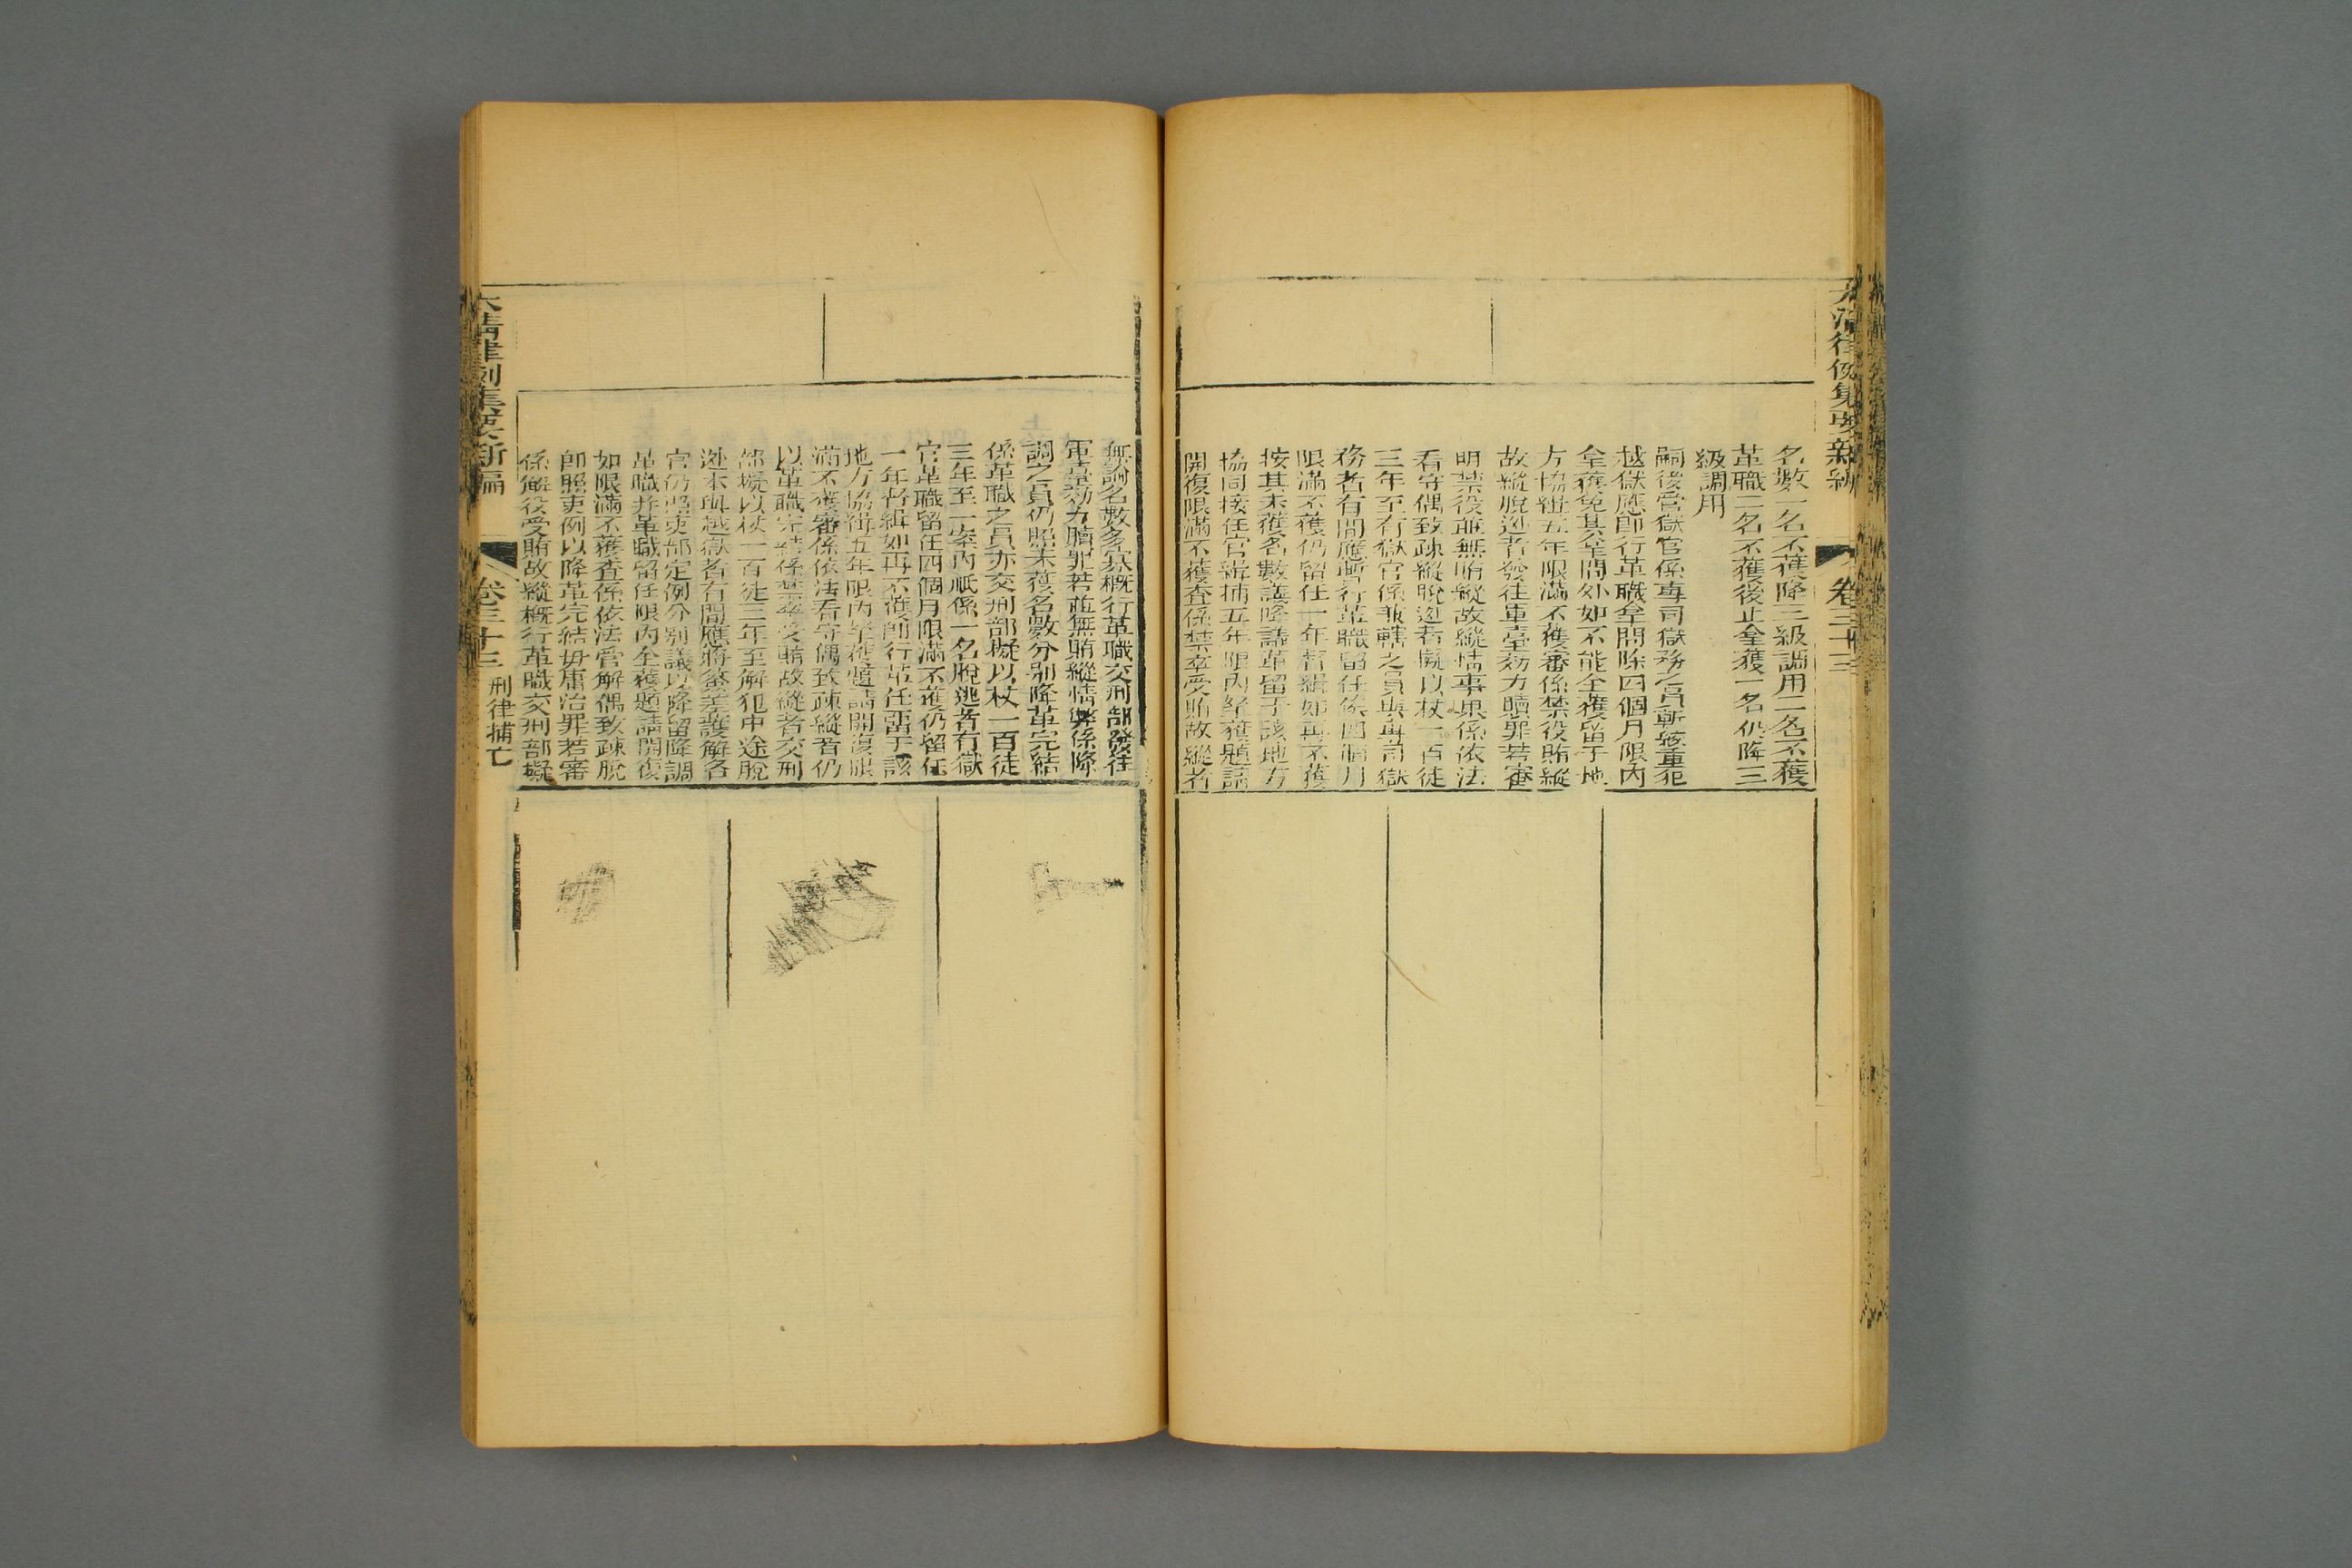 大清律例集要新編
卷三十三
名數一名不獲降三級調用二名不獲
革職二名不獲後止全獲一名仍降三
級調用
嗣後管獄官係專司獄務之員斬絞重犯
越獄應即行革職拏問除四個月限內
全獲免其拏問外如不能全獲留于地
方協緝五年限滿不獲審係禁役賄縱
故縱脫逃者發往軍臺効力贖罪若審
明禁役並無賄縱故縱情事果係依法
看守偶致疎縱脫逃者擬以杖一百徒
三年至有獄官係兼轄之員與專司獄
務者有間應暫行革職留任係四個月
限滿不獲仍留任一年督緝如再不獲
按其未獲名數議降議革留于該地方
協同接任官緝捕五年限內拏獲題請
開復限滿不獲查係禁卒受賄故縱者
無論名數多寡概行革職交刑部發往
軍臺効力贖罪若並無賄縱情弊係降
調之員仍照未獲名數分別降革完結
係革職之員亦交刑部擬以杖一百徒
三年至一案內祇係一名脫逃者有獄
官革職留任四個月限滿不獲仍留任
一年督緝如再不獲即行革任留于該
地方協緝五年限內拏獲題請開復限
滿不獲審係依法看守偶致疎縱者仍
以革職完結係禁卒受賄故縱者交刑
部擬以杖一百徒三年至解犯中途脫
逃本與越獄者有間應將簽差護解各
官仍照吏部定例分別議以降留降調
革職并革職留任限內全獲題請開復
如限滿不獲查係依法管解偶致疎脫
即照吏例以降革完結毋庸治罪若審
係解役受賄故縱概行革職交刑部擬
大清律例集要新編
卷三十三
刑律捕亡